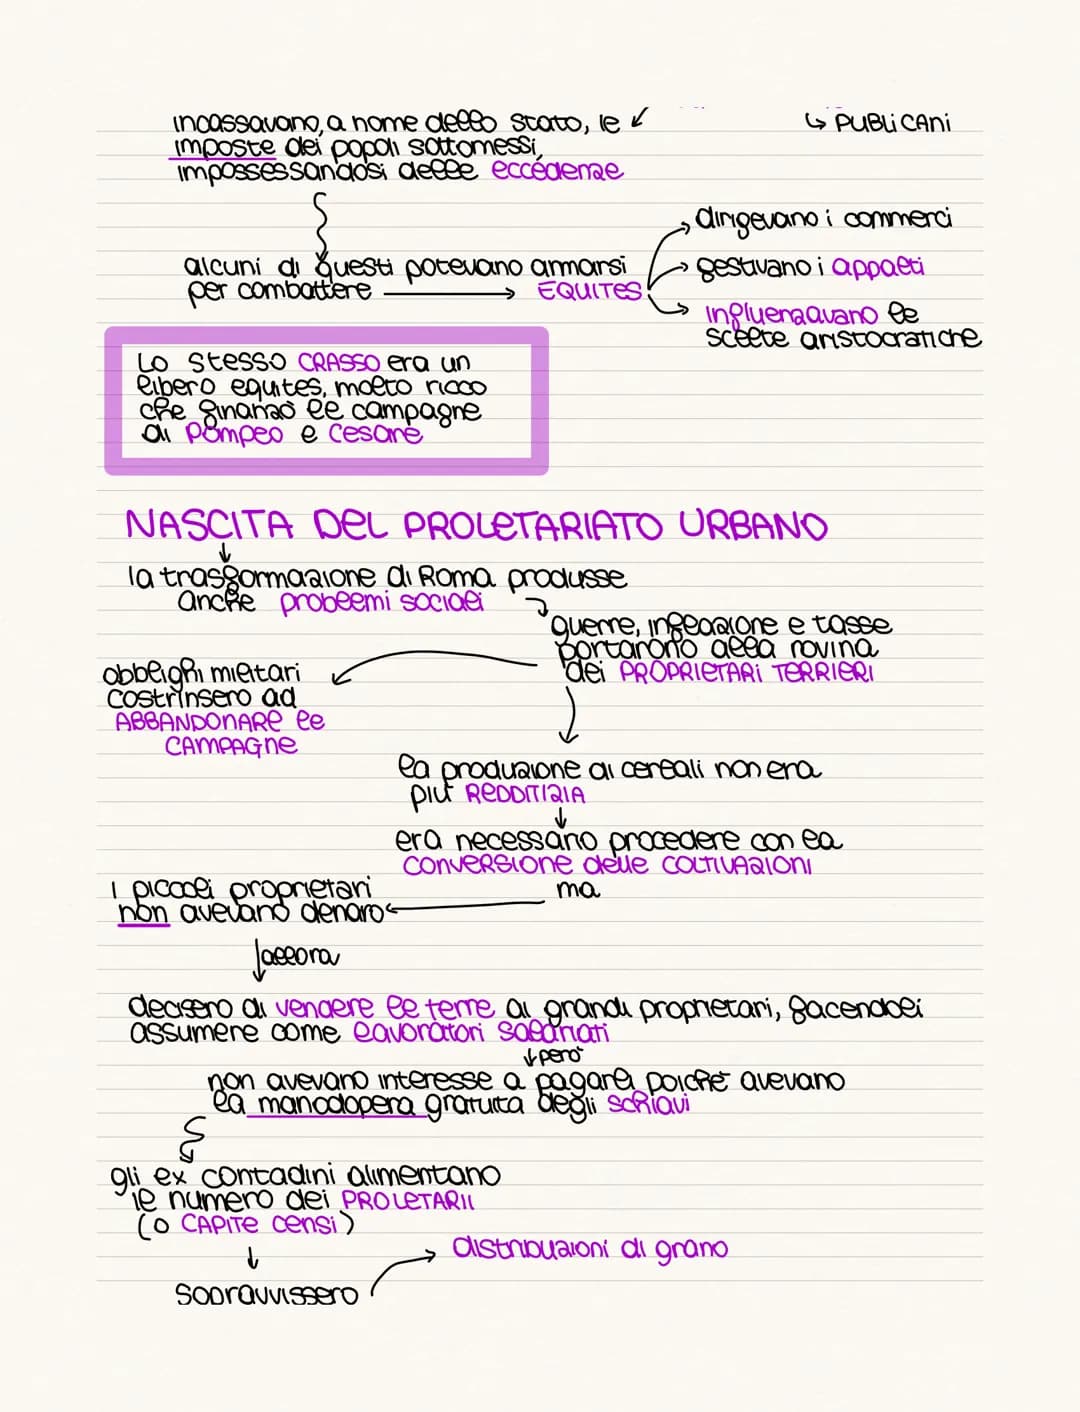 incassavano, a nome dello stato, le
↳ PUBLICANI
imposte dei popoli sottomessi,
impossessandosi delle eccedenze
dirigevano i commerci
alcuni di questi potevano armarsi
gestivano i appalti
per combattere → EQUITES
influenzavano le
scelte aristocratiche
Lo stesso CRASSO era un
libero equites, molto ricco
che finanzò le campagne
di Pompeo e Cesare
NASCITA DEL PROLETARIATO URBANO
la trasformazione di Roma produsse
anche problemi sociali
guerre, inflazione e tasse
portarono alla rovina
dei PROPRIETARI TERRIERI
obblighi militari
costrinsero ad
ABBANDONARE le
CAMPAGNE
la produzione di cereali non era
più REDDITIZIA
era necessario procedere con la
CONVERSIONE delle COLTIVAZIONI
ma
i piccoli proprietari
non avevano denaro
allora
decisero di vendere le terre ai grandi proprietari, facendoli
assumere come lavoratori salariati
però
non avevano interesse a pagarli poiché avevano
la manodopera gratuita degli schiavi
gli ex contadini alimentano
il numero dei PROLETARII
(o CAPITE CENSI)
distribuzioni di grano
sopravvissero